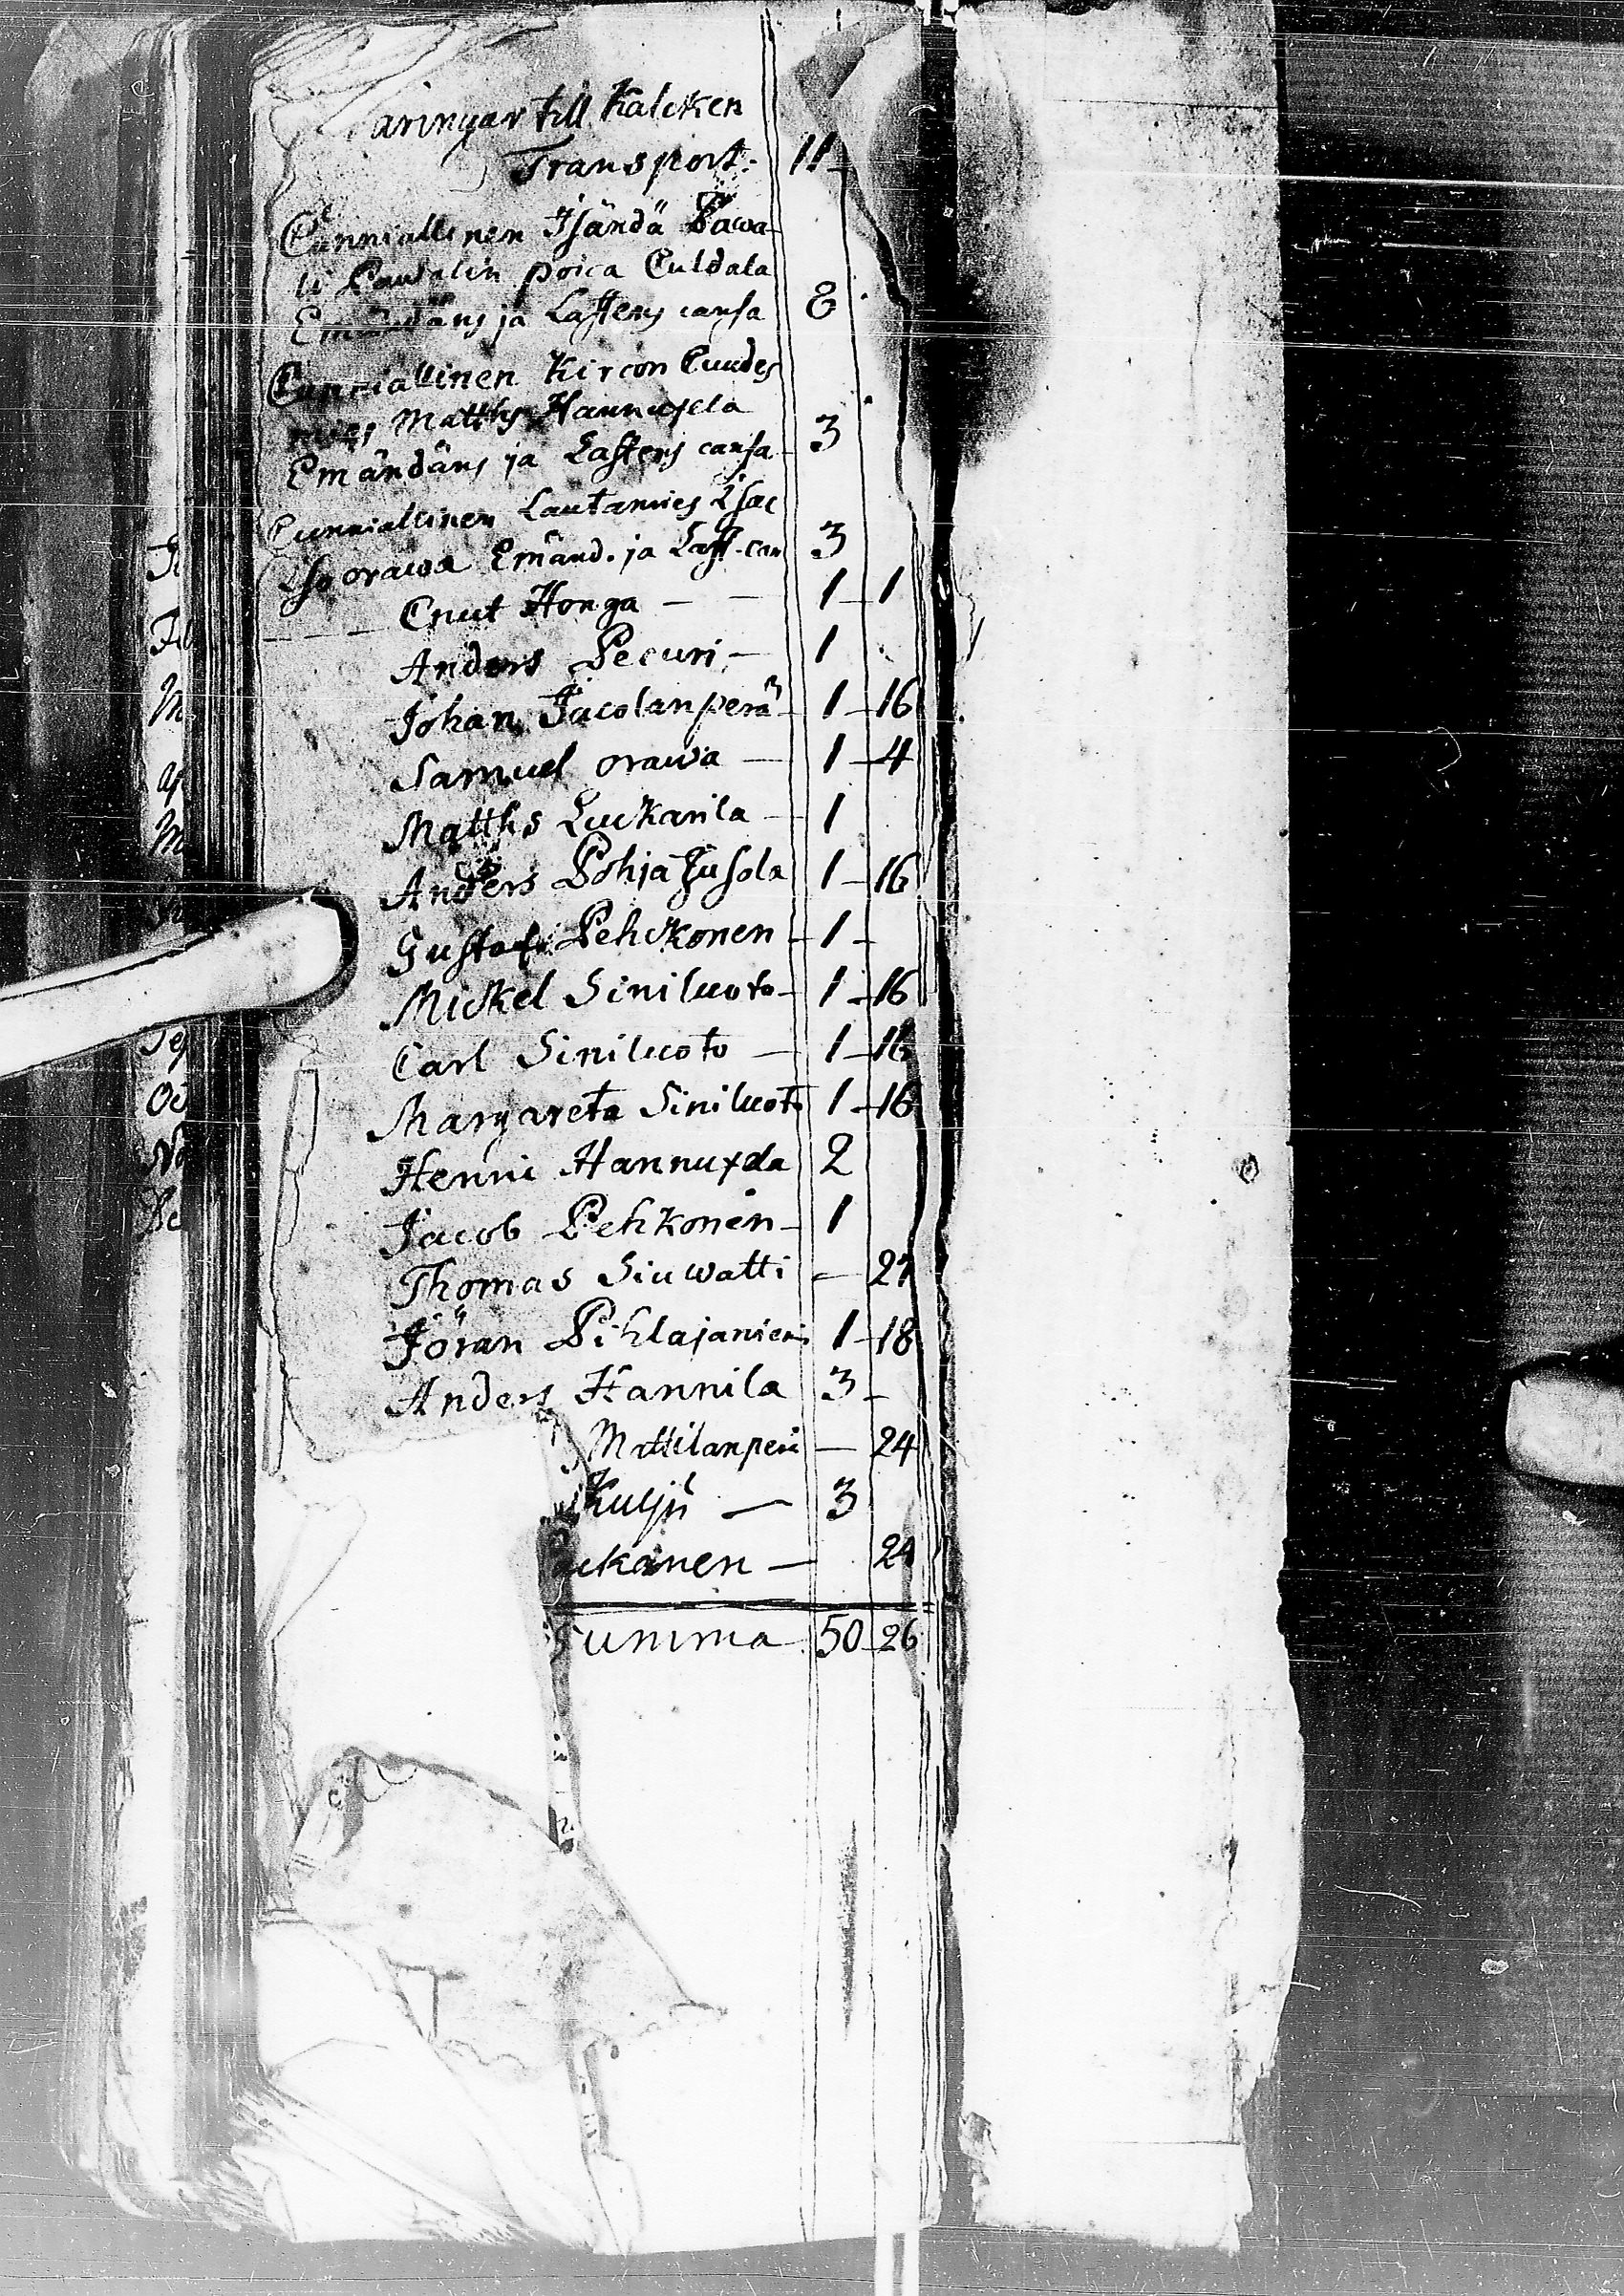 aringar till Kalcken
Transport. 11
Cunniallinen Isändä Pawa-
li Pawalin poica Culdala
Emändäns ja Lastens cansa 8
Cunniallinen Kircon Cuudes
mies Matths Hannuxela
Emändäns ja Lastens cansa 3
Cunniallinen Lautamies Isac
Iso orawa Emänd. ja Last. can 3
Cnut Honga — — 1 - 1
Anders Pecuri — 1
Johan Jacolanperä 1 - 16
Samuel orawa — 1 - 4
Matths Luckarila — 1
Anders Pohja Jusola 1 - 16
Gustaf Pehckonen - 1 -
Mickel Siniluoto - 1 - 16
Carl Siniluoto — 1 - 16
Margareta Siniluoto 1 - 16
Henric Hannuxela 2
Jacob Pehkonen - 1
Thomas Siuwatti — 27
Jöran Pihlajaniemi 1 - 18
Anders Hannila 3 -
Mattilanperä — 24
Kulju — 3
ckanen — 24
Summa 50 - 26